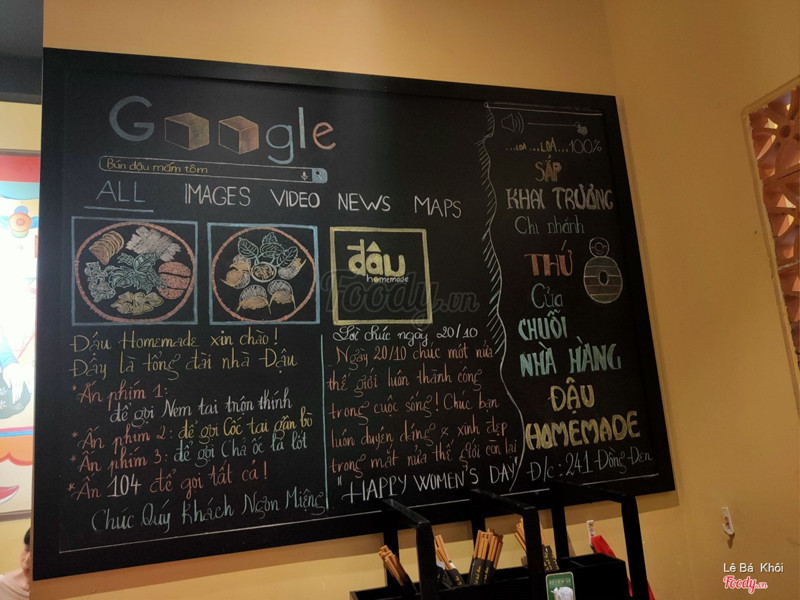 Google
Bún đậu mắm tôm
ALL IMAGES VIDEO NEWS MAPS
đậu
homemade
Đậu Homemade xin chào!
Đây là tổng đài nhà Đậu
*Ấn phím 1:
để gọi Nem tai trộn thính
*Ấn phím 2: để gọi Cóc tai gân bò
*Ấn phím 3: để gọi Chả ốc lá lốt
*Ấn 104 để gọi tất cả!
Chúc Quý Khách Ngon Miệng
Lời chúc ngày 20/10
Ngày 20/10 chúc một nửa
thế giới luôn thành công
trong cuộc sống! Chúc bạn
luôn duyên dáng & xinh đẹp
trong mắt nửa thế giới còn lại
"HAPPY WOMEN'S DAY"
...LOA...LOA...100%
SẮP
KHAI TRƯƠNG
Chi nhánh
THỨ 8
Của
CHUỖI
NHÀ HÀNG
ĐẬU
HOMEMADE
Đ/c: 241 Đồng Đen
Foody.vn
Lê Bá Khôi
Foody.vn